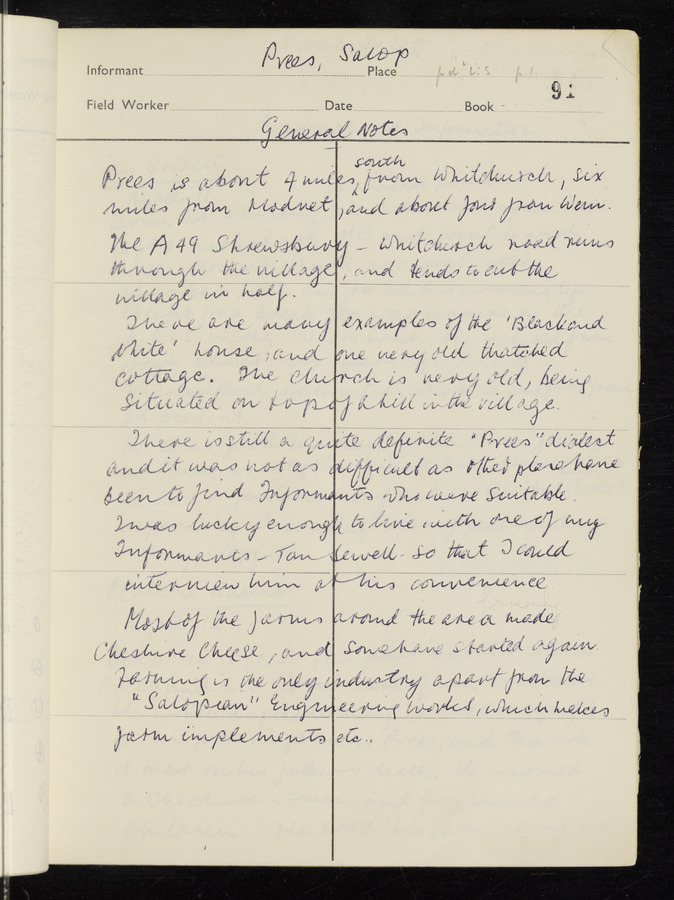 Prees, Salop
Informant Place
91
Field Worker Date Book
General Notes
Prees is about 4 miles south from Whitchurch, six
miles from Hodnet, and about four from Wem.
The A 49 Shrewsbury - Whitchurch road runs
through the village, and tends to cut the
village in half.
There are many examples of the 'Black and
White' house, and one very old thatched
cottage. The church is very old, being
situated on top of a hill in the village.
There is still a quite definite "Prees" dialect
and it was not as difficult as other places have
been to find Informants who were suitable.
I was lucky enough to live with one of my
Informants - Tom Sewell - so that I could
interview him at his convenience
Most of the farms around the area made
Cheshire Cheese, and some have started again.
Farming is the only industry apart from the
"Salopian" Engineering Works, which makes
farm implements etc..